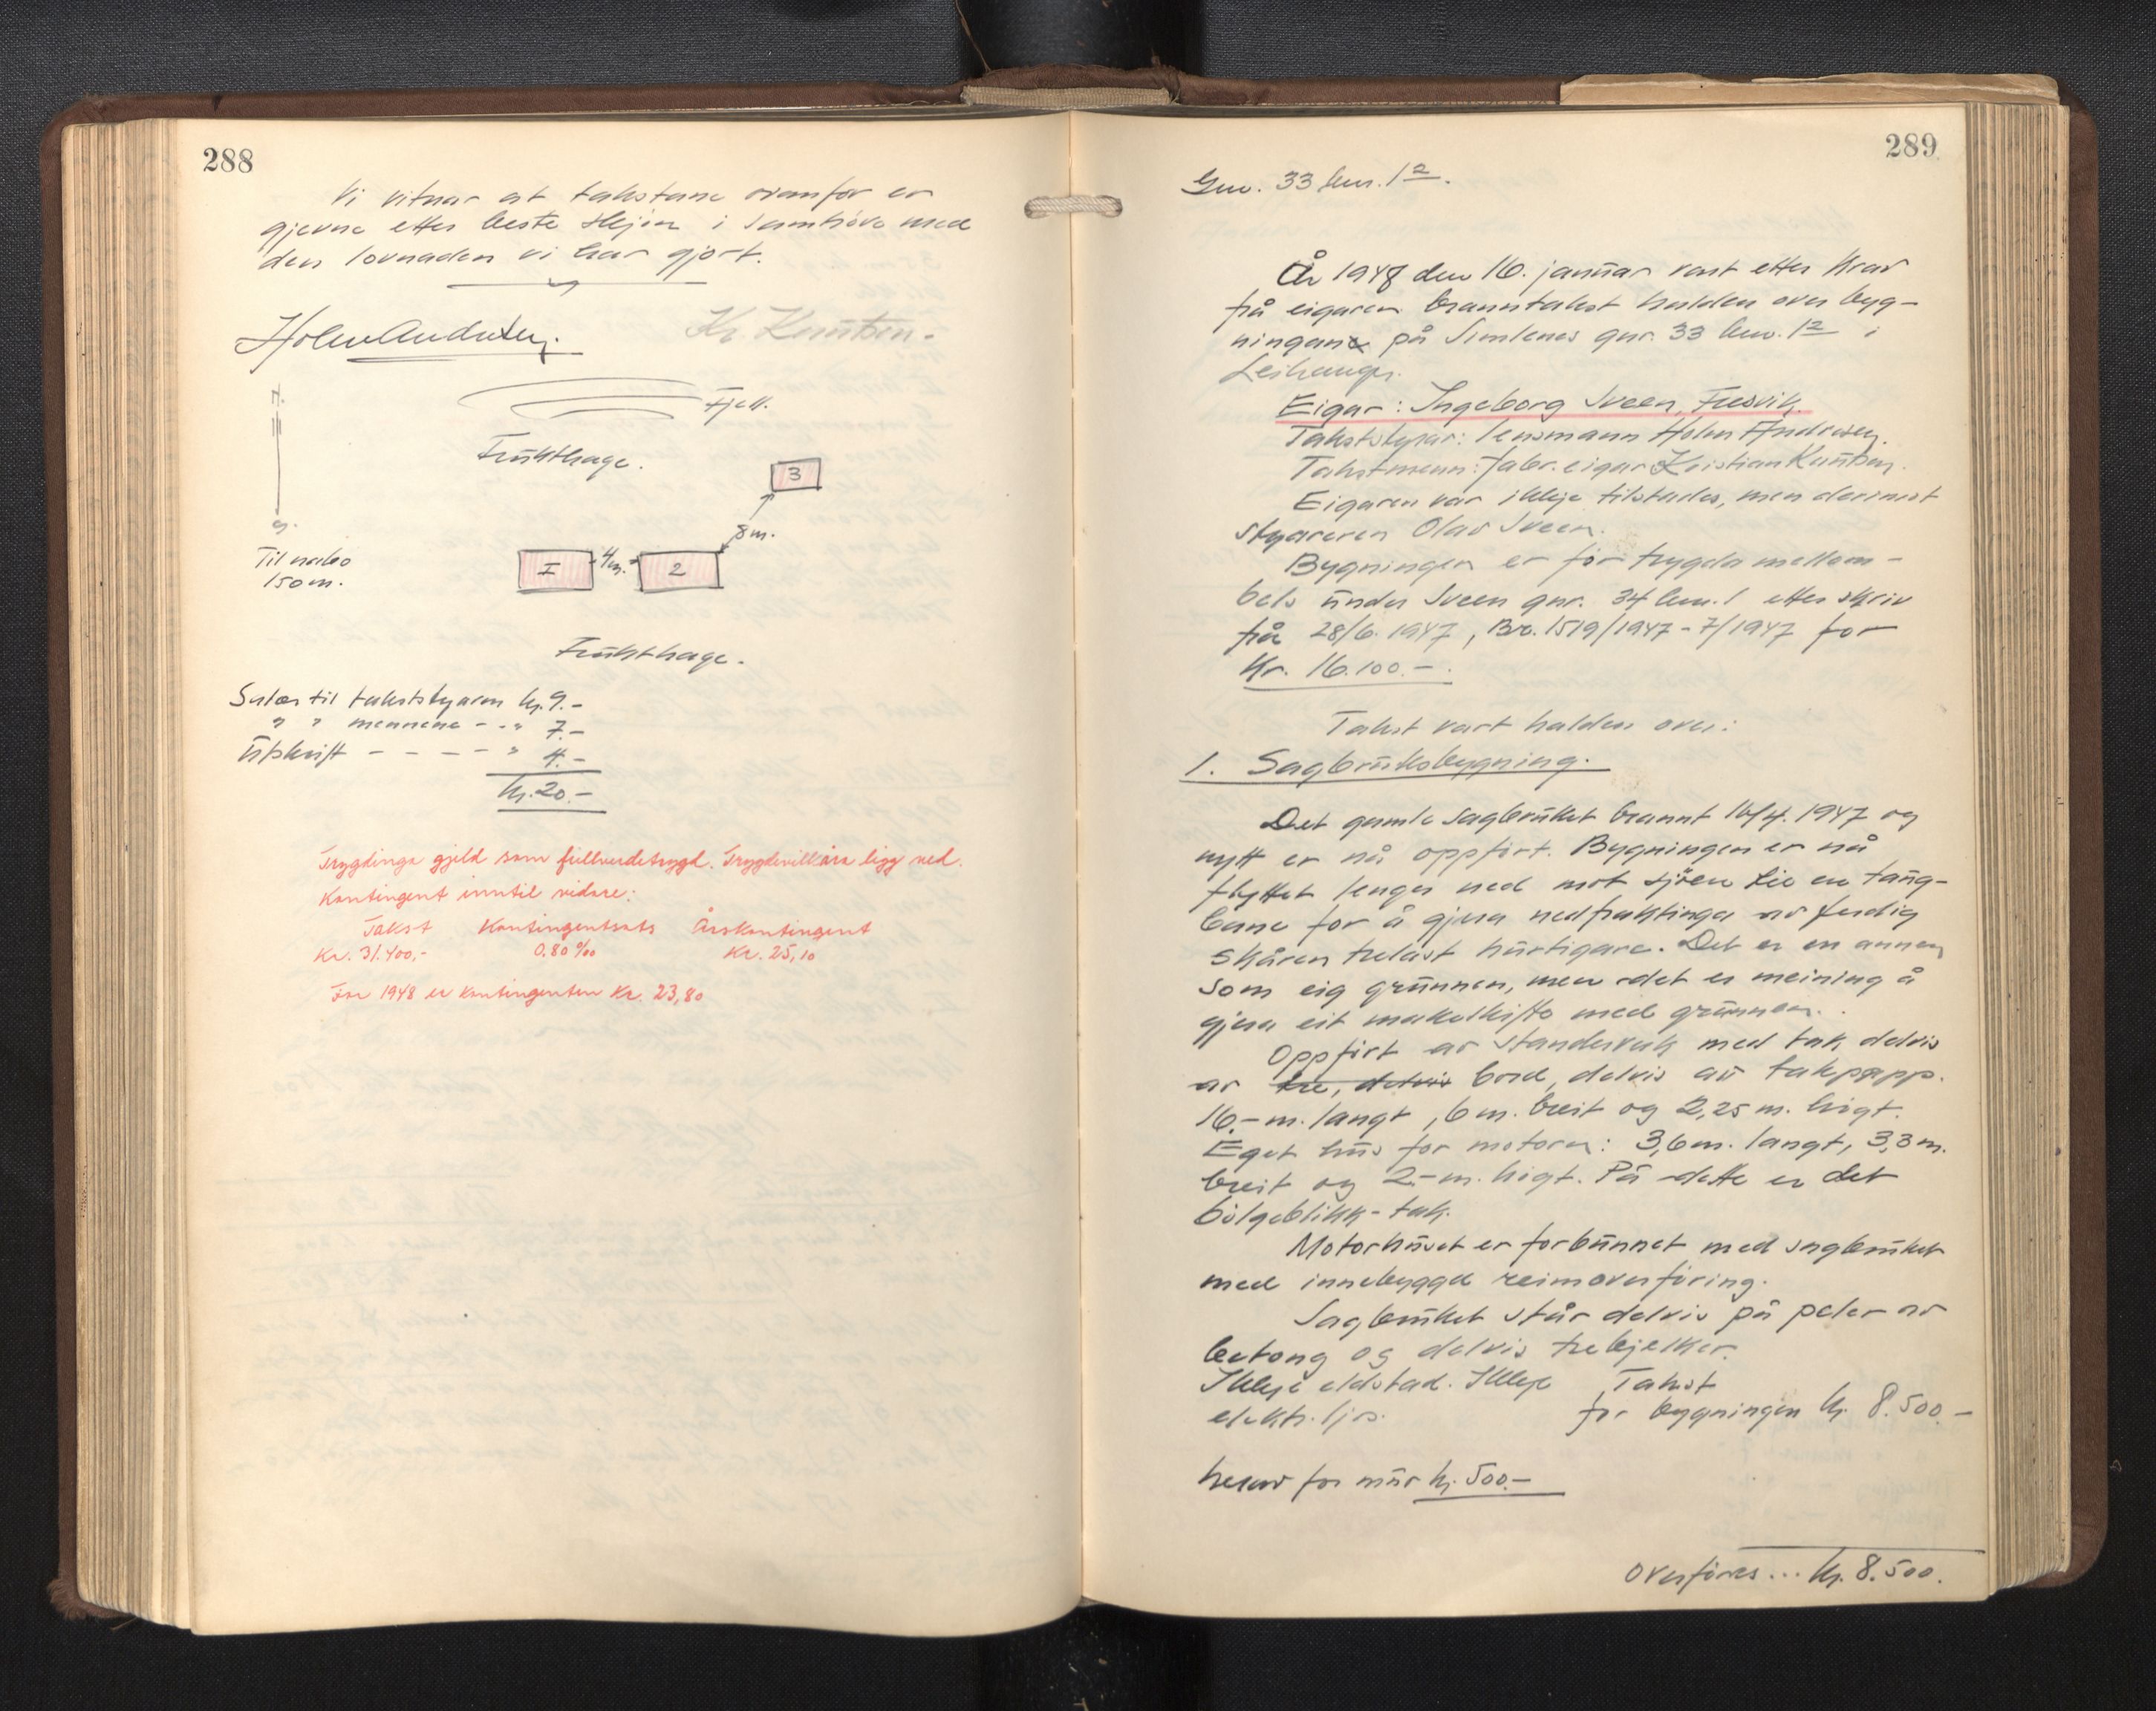 288
Vi vitnar at takstane ovanfor er
gjevne etter beste skjön i samhöve med
den lovnaden vi har gjort.
Holm Andresen. Kr. Knutsen.
Fjell.
Frukthage.
3
8 m.
I 4 m. 2
Til nabo
150 m.
Frukthage.
Salær til takststyraren kr. 9.-
" " mennene - - " 7.-
Utskrift - - - - " 4.-
kr. 20.-
Trygdinga gjeld som fullverdetrygd. Trygdevilkåra ligg ved.
Kontingent inntil vidare:
Takst Kontingentsats Årskontingent
Kr. 31.400,- 0.80 ‰ Kr. 25,10
For 1948 er kontingenten Kr. 23,80
289
Gnr. 33 bnr. 12.
År 1948 den 16. januar vart etter krav
frå eigaren branntakst halden over byg-
ningane på Simlenes gnr. 33 bnr. 12 i
Leikanger.
Eigar: Ingeborg Sveen, Fresvik.
Takststyrar: lensmann Holm Andresen.
Takstmenn: fabr. eigar Kristian Knutsen.
Eigaren var ikkje tilstades, men derimot
styraren Olav Sveen.
Bygningen er för trygda mellom-
bels under Sveen gnr. 34 bnr. 1 etter skriv
frå 28/6. 1947, Br. 1519/1947 - 7/1947 for
Kr. 16.100.-.
Takst vart halden over:
1. Sagbruksbygning.
Det gamle sagbruket brannt 16/4. 1947 og
nytt er nå oppfört. Bygningen er nå
flyttet lenger ned mot sjöen til en taug-
bane for å gjera nedfraktinga av ferdig
skåren trelast hurtigare. Det er en annen
som eig grunnen, men det er meining å
gjera eit makeskifte med grunnen.
Oppfört av standerverk med tak delvis
av tre, delvis bord, delvis av takpapp.
16.- m. langt, 6 m. breit og 2,25 m. högt.
Eget hus for motoren: 3,6 m. langt, 3,3 m.
breit og 2.- m. högt. På dette er det
bölgeblikk-tak.
Motorhuset er forbunnet med sagbruket
med innebyggd reimoverföring.
Sagbruket står delvis på peler av
betong og delvis trebjelker.
Ikkje eldstad. Ikkje Takst
elektr. ljos. for bygningen kr. 8.500.-
herav for mur kr. 500.-
Overföres ... kr. 8.500.